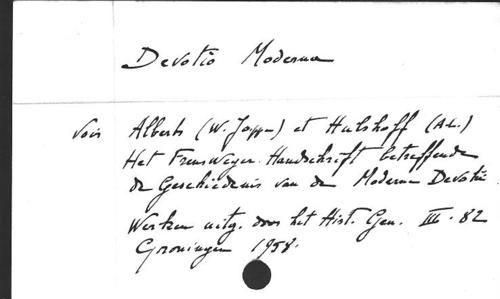 Devotio Moderna
Voir Alberts (W. Jappe) et Hulshoff (A.L.)
Het Frensweger Handschrift betreffende
de Geschiedenis van de Moderne Devotie
Werken uitg. door het Hist. Gen. III. 82
Groningen 1958.